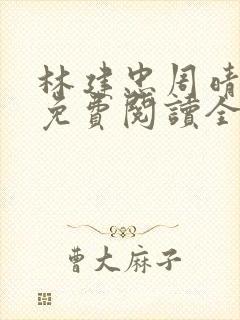 林建忠周晴
免費閱讀全
曹大麻子